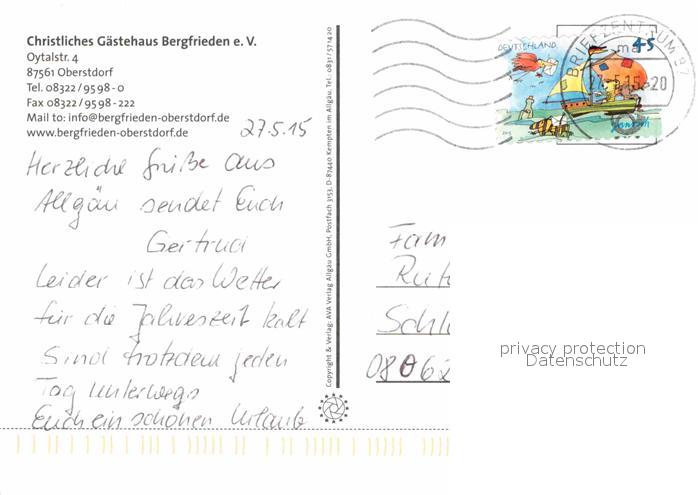 Christliches Gästehaus Bergfrieden e. V.
Oytalstr. 4
87561 Oberstdorf
Tel. 08322 / 95 98 - 0
Fax 08322 / 95 98 - 222
Mail to: info@bergfrieden-oberstdorf.de
www.bergfrieden-oberstdorf.de
27.5.15
Herzliche Grüße aus
Allgäu sendet Euch
Gertrud
Leider ist das Wetter
für die Jahreszeit kalt
Sind trotzdem jeden
Tag Unterwegs
Euch ein schönen Urlaub
Copyright & Verlag: AVA Verlag Allgäu GmbH, Postfach 3153, D-87440 Kempten im Allgäu, Tel.: 0831/571420
DEUTSCHLAND
45
Janosch
BRIEFZENTRUM 87
27.5.15-20
Fam
Rut
Schl
0806
privacy protection
Datenschutz